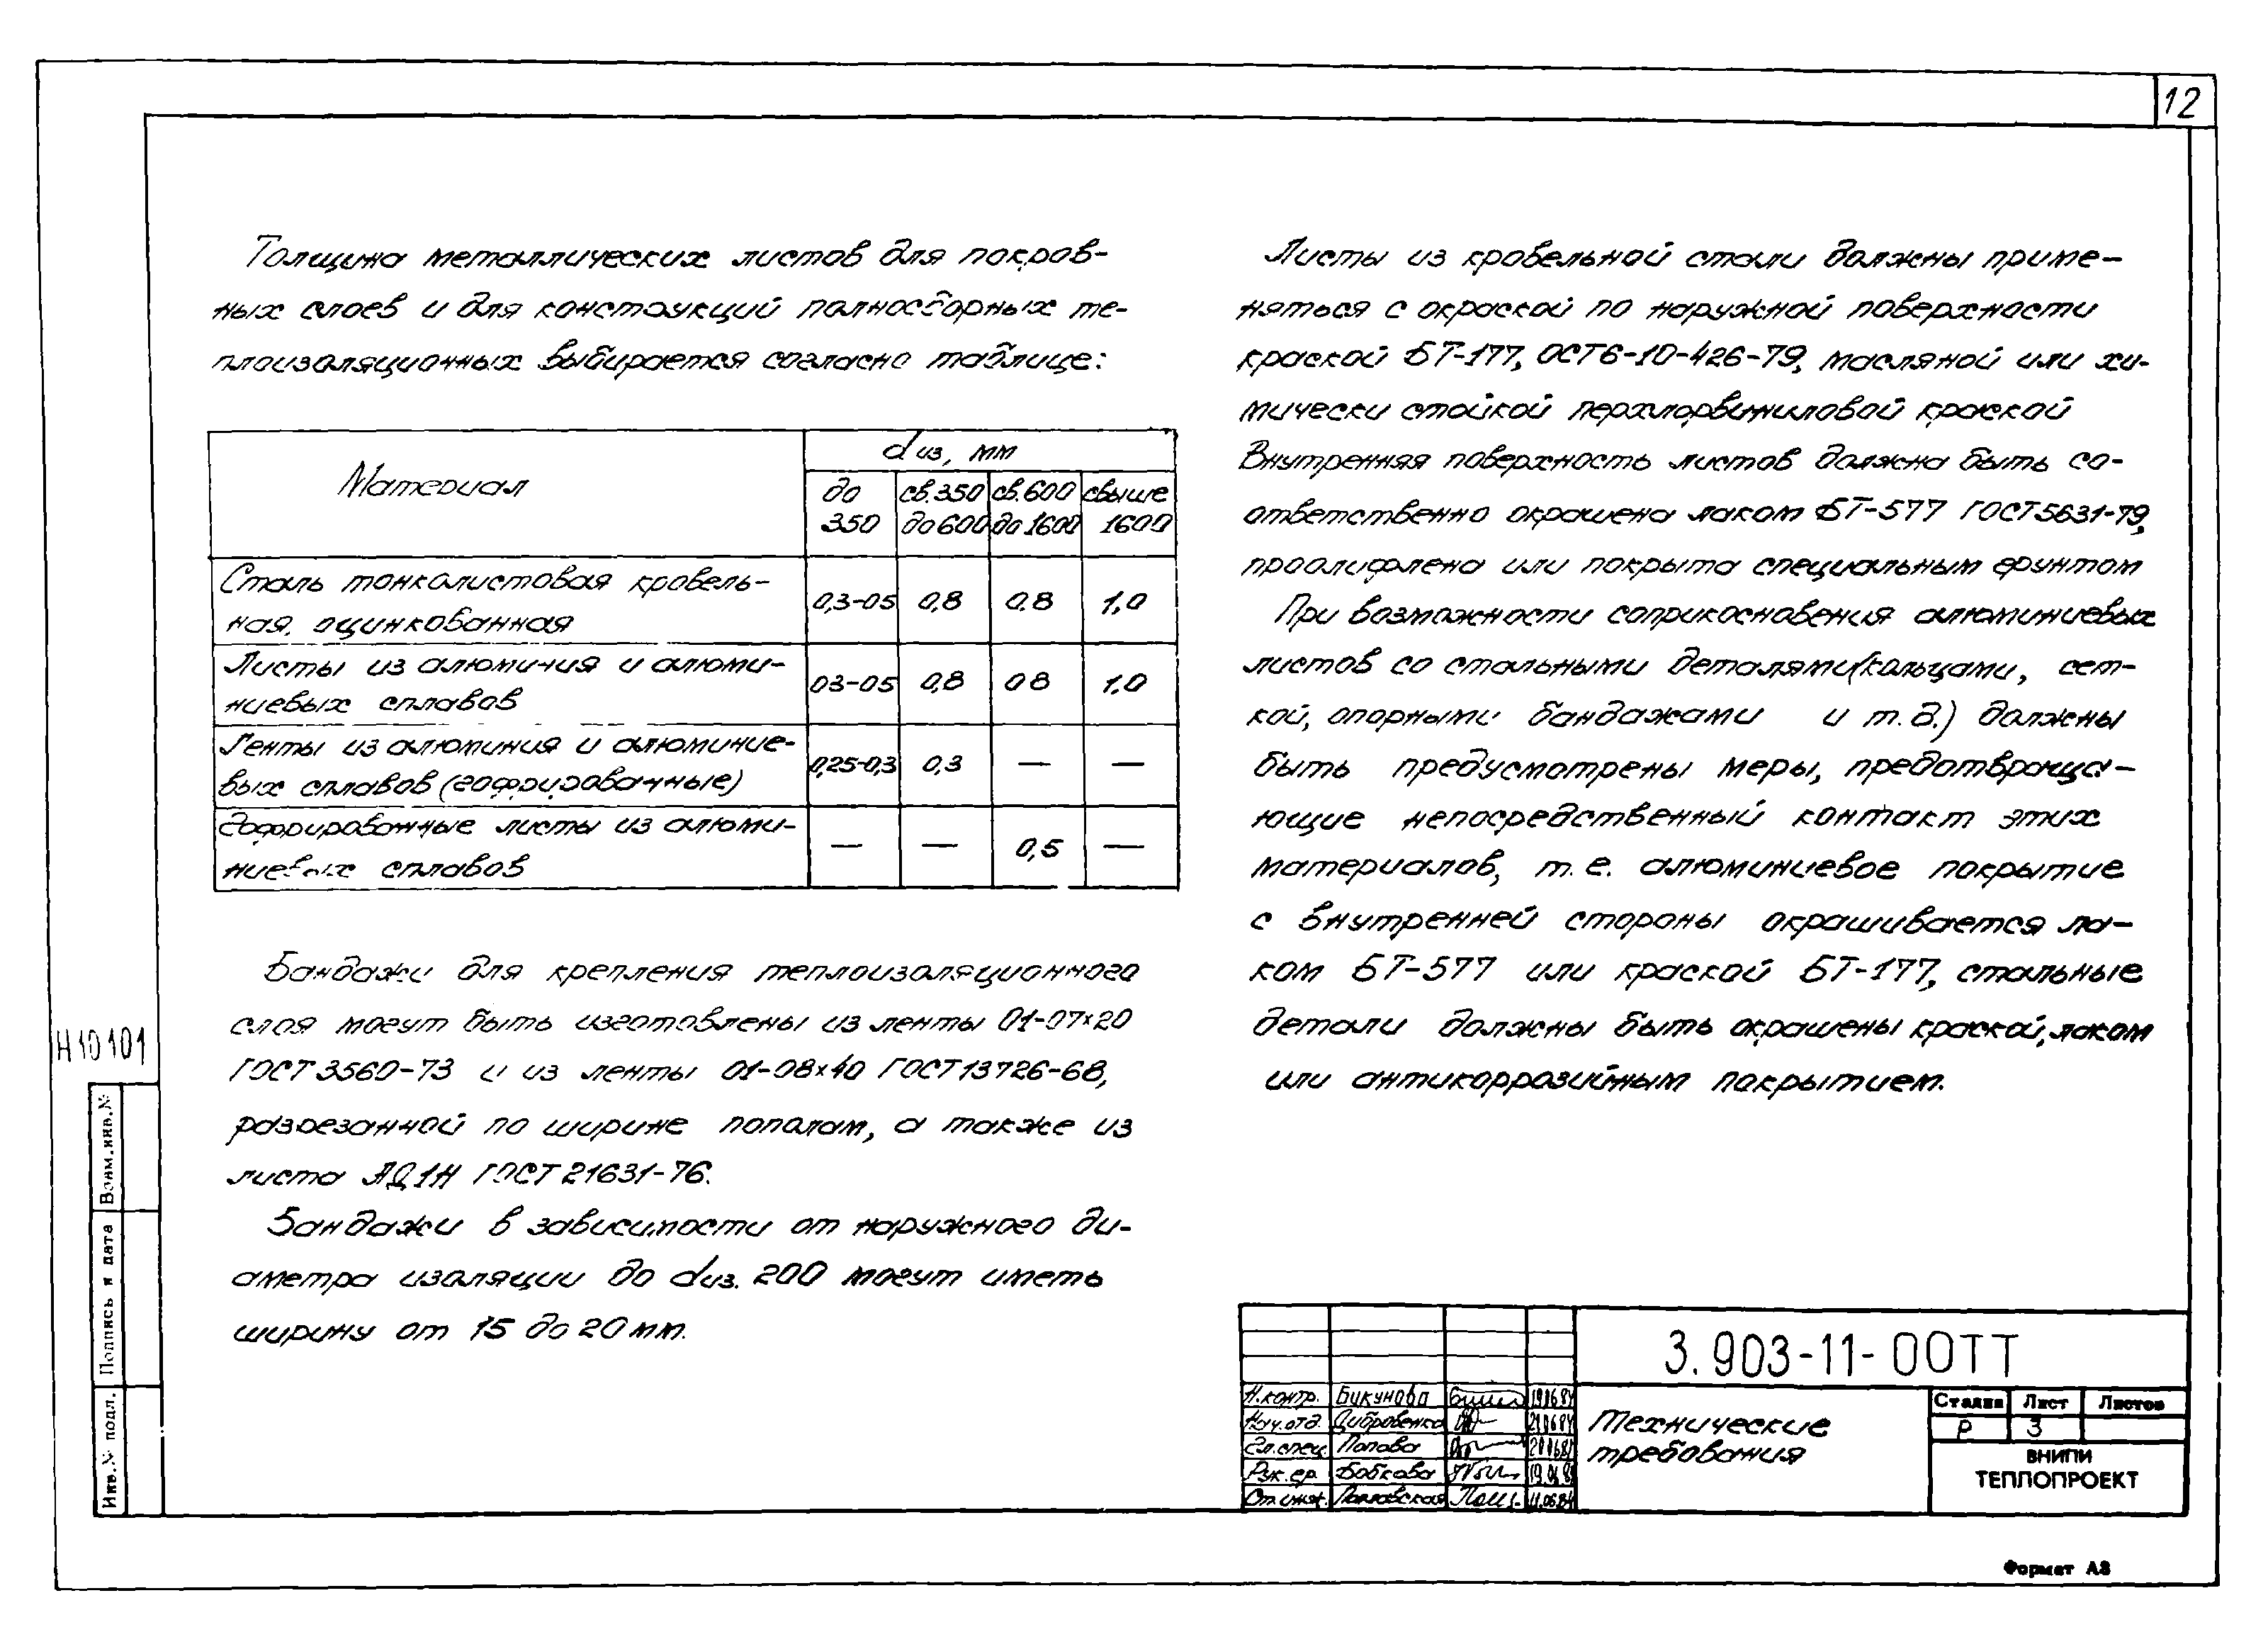 12
Толщина металлических листов для покров-
ных слоев и для конструкций полносборных те-
плоизоляционных выбирается согласно таблице:
Материал
dиз, мм
до 350
св.350 до 600
св.600 до 1600
свыше 1600
Сталь тонколистовая кровель-
ная, оцинкованная
0,3-05 0,8 0.8 1,0
Листы из алюминия и алюми-
ниевых сплавов
03-05 0,8 08 1,0
Ленты из алюминия и алюминие-
вых сплавов (гофрированные)
0,25-0,3 0,3 — —
Гофрированные листы из алюми-
ниевых сплавов
— — 0,5 —
Бандажи для крепления теплоизоляционного
слоя могут быть изготовлены из ленты 01-07×20
ГОСТ 3560-73 и из ленты 01-08×40 ГОСТ 13726-68,
разрезанной по ширине пополам, а также из
листа АД1Н ГОСТ 21631-76.
Бандажи в зависимости от наружного ди-
аметра изоляции до dиз. 200 могут иметь
ширину от 15 до 20 мм.
Листы из кровельной стали должны приме-
няться с окраской по наружной поверхности
краской БТ-177, ОСТ6-10-426-79, масляной или хи-
мически стойкой перхлорвиниловой краской
Внутренняя поверхность листов должна быть со-
ответственно окрашена лаком БТ-577 ГОСТ 5631-79,
проолифлена или покрыта специальным грунтом
При возможности соприкосновения алюминиевых
листов со стальными деталями (кольцами, сет-
кой, опорными бандажами и т.д.) должны
быть предусмотрены меры, предотвраща-
ющие непосредственный контакт этих
материалов, т.е. алюминиевое покрытие
с внутренней стороны окрашивается ла-
ком БТ-577 или краской БТ-177, стальные
детали должны быть окрашены краской, лаком
или антикоррозийным покрытием.
Н10101
Взам.инв.№
Подпись и дата
Инв.№ подл.
3.903-11-00ТТ
Н.контр. Бикунова 19.06.84
Нач.отд. Дибровенко 21.06.84
Гл.спец. Попова
Рук.гр. Бобкова
Ст.инж.
Технические
требования
Стадия Лист Листов
Р 3
ВНИПИ
ТЕПЛОПРОЕКТ
Формат А3